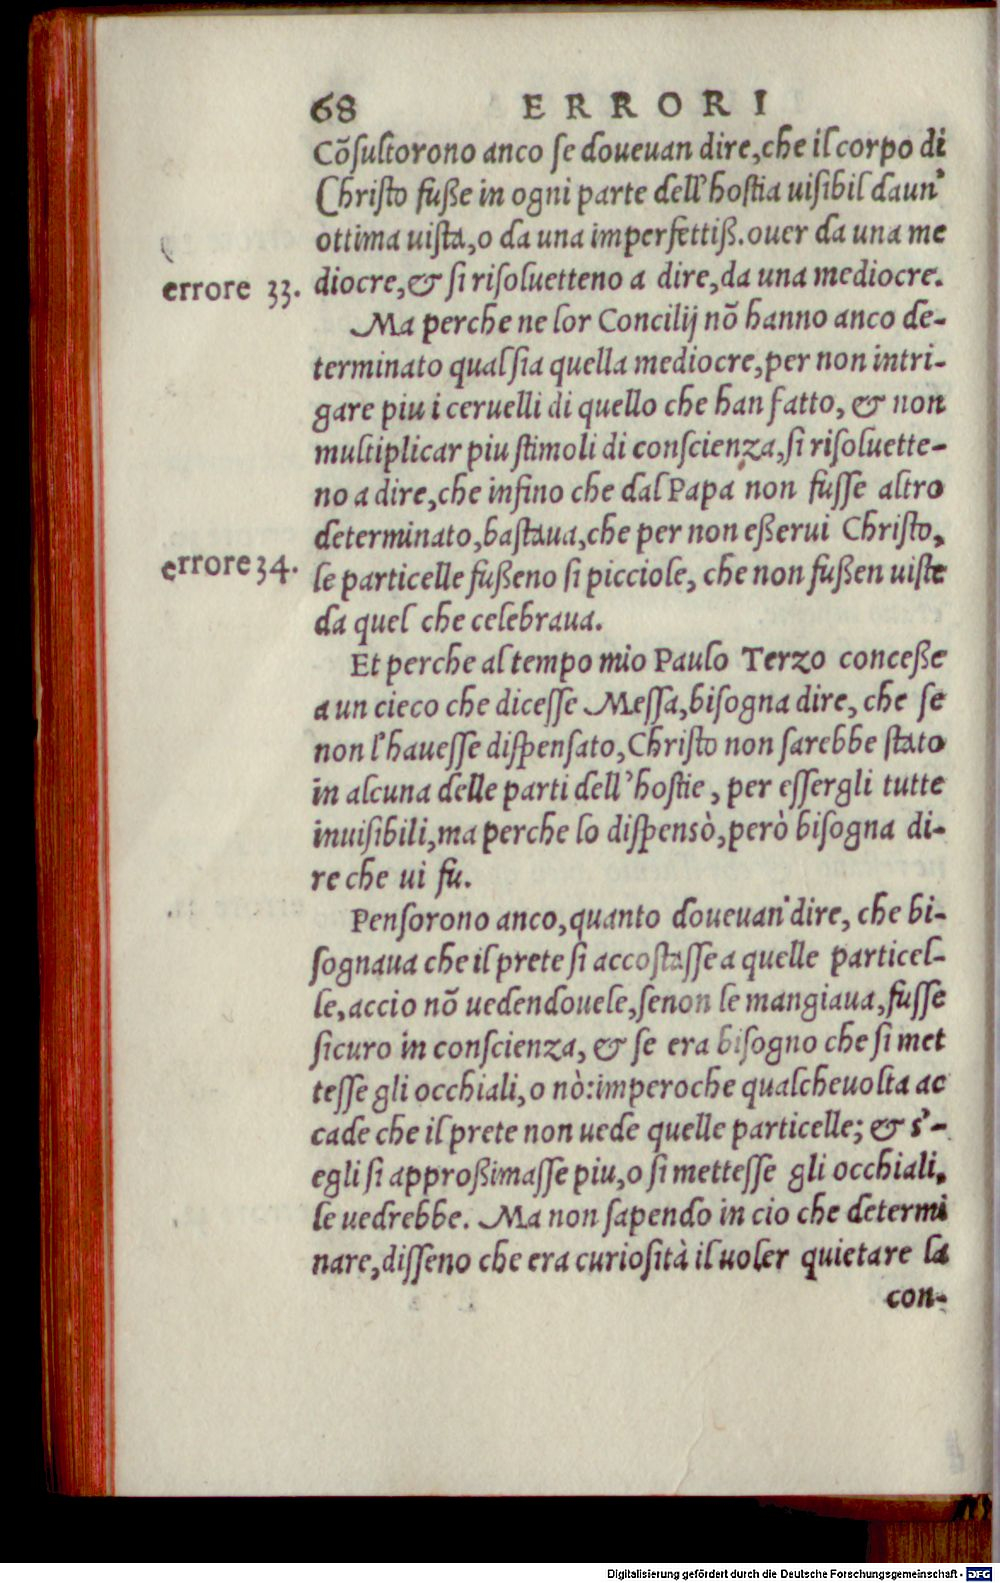 68 ERRORI
Cõsultorono anco se doueuan dire,che il corpo di
Christo fuße in ogni parte dell'hostia uisibil daun'
ottima uista,o da una imperfettiß.ouer da una me
errore 33. diocre,& si risoluetteno a dire,da una mediocre.
Ma perche ne lor Concilij nõ hanno anco de-
terminato qual sia quella mediocre,per non intri-
gare piu i ceruelli di quello che han fatto, & non
multiplicar piu stimoli di conscienza,si risoluette-
no a dire,che infino che dal Papa non fusse altro
determinato,bastaua,che per non eßerui Christo,
errore 34. le particelle fußeno si picciole, che non fußen uiste
da quel che celebraua.
Et perche al tempo mio Paulo Terzo conceße
a un cieco che dicesse Messa,bisogna dire, che se
non l'hauesse dispensato,Christo non sarebbe stato
in alcuna delle parti dell'hostie, per essergli tutte
inuisibili,ma perche lo dispensò,però bisogna di-
re che ui fu.
Pensorono anco,quanto doueuan' dire, che bi-
sognaua che il prete si accostasse a quelle particel-
le,accio nõ uedendouele,senon le mangiaua,fusse
sicuro in conscienza, & se era bisogno che si met
tesse gli occhiali,o nò:imperoche qualcheuolta ac
cade che il prete non uede quelle particelle; & s'-
egli si approßimasse piu,o si mettesse gli occhiali,
le uedrebbe. Ma non sapendo in cio che determi
nare,disseno che era curiosità il uoler quietare la
con-
Digitalisierung gefördert durch die Deutsche Forschungsgemeinschaft - DFG